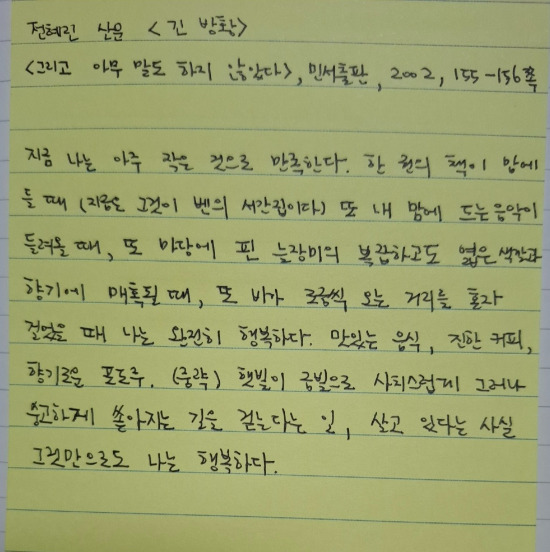 전혜린 산문 <긴 방황>
<그리고 아무 말도 하지 않았다>, 민서출판, 2002, 155-156쪽
지금 나는 아주 작은 것으로 만족한다. 한 권의 책이 맘에
들 때 (지금은 그것이 벤의 서간집이다) 또 내 맘에 드는 음악이
들려올 때, 또 마당에 핀 늦장미의 복잡하고도 엷은 색깔과
향기에 매혹될 때, 또 비가 조금씩 오는 거리를 혼자
걸었을 때 나는 완전히 행복하다. 맛있는 음식, 진한 커피,
향기로운 포도주. (중략) 햇빛이 금빛으로 사치스럽게 그러나
숭고하게 쏟아지는 길을 걷는다는 일, 살고 있다는 사실
그것만으로도 나는 행복하다.